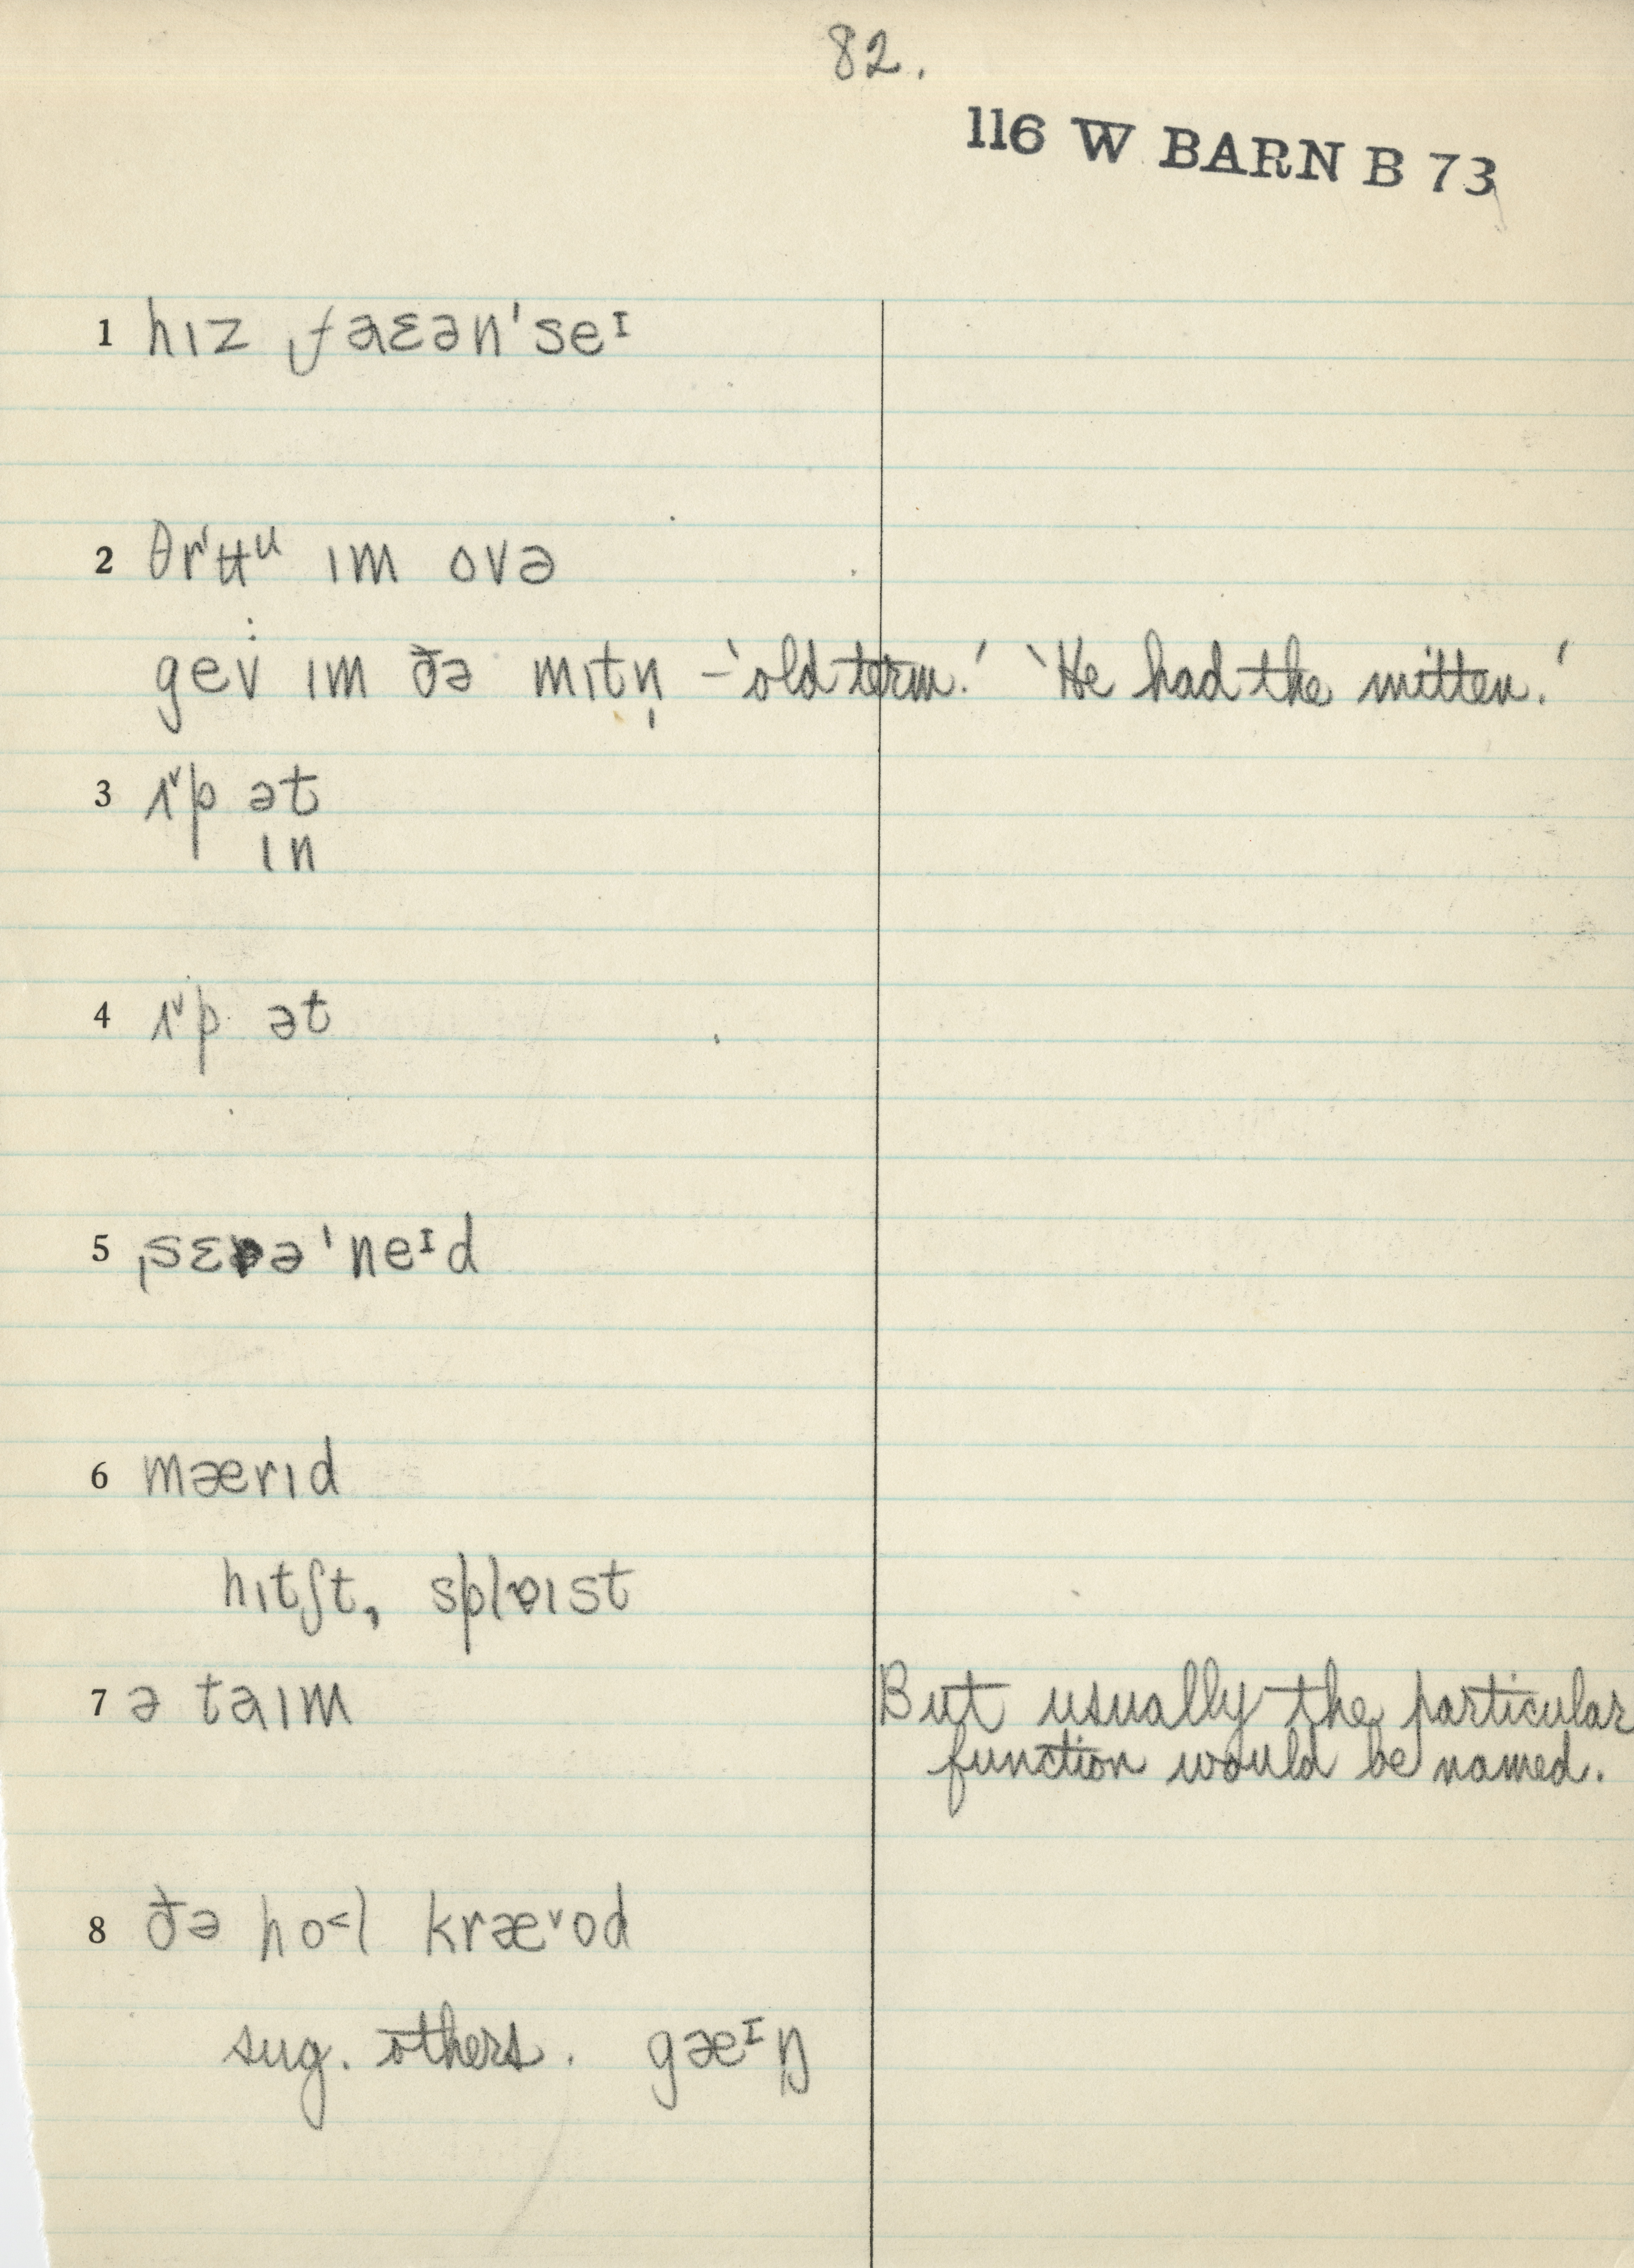 82.
116 W BARN B 73
1 hɪz ˌfaɛən'seᶦ
2 θr'ʉᵘ ɪm ovə
gev ɪm ðə mɪtn̩ – 'old term.' 'He had the mitten.'
3 ət
ɪn
4 ət
5 ˌsɛrə'neᶦd
6 mærɪd
hɪtʃt, splɒɪst
7 ə taɪm But usually the particular
function would be named.
8 ðə ho˂l kræ˅od
sug. others. gæᶦŋ